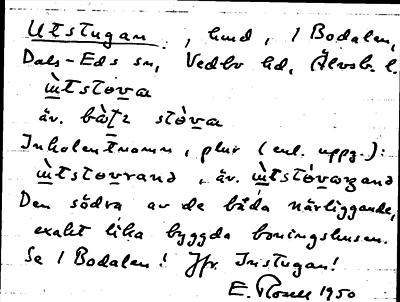 Utstugan , hmd, 1 Bodalen,
Dals-Eds sn, Vedbo hd, Älvsb. l.
ɯ̀tstova
äv. bàtə stòva
Inkolentnamn, plur (enl. uppg.):
ɯ̀tstovranə, äv.
Den södra av de båda närliggande,
exakt lika byggda boningshusen.
Se 1 Bodalen! Jfr Instugan!
E. 1950